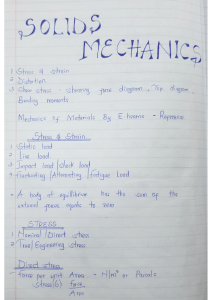 SOLIDS
MECHANICS
1 Stress & strain
2 Distortion
3 Shear stress - shearing force diagrams, The diagram -
Bending moments
Mechanics of Materials By
Stress & Strain
1 Static load
2 Live load
3 Impact load / shock load
4 Fluctuating / Alternating / fatigue load
- A body at equilibrium has the sum of the
external forces equate to zero
STRESS
1 Nominal / Direct stress
2 True / Engineering stress
Direct stress
Force per unit Area - N/m² or Pascals
Stress(σ) Force
Area